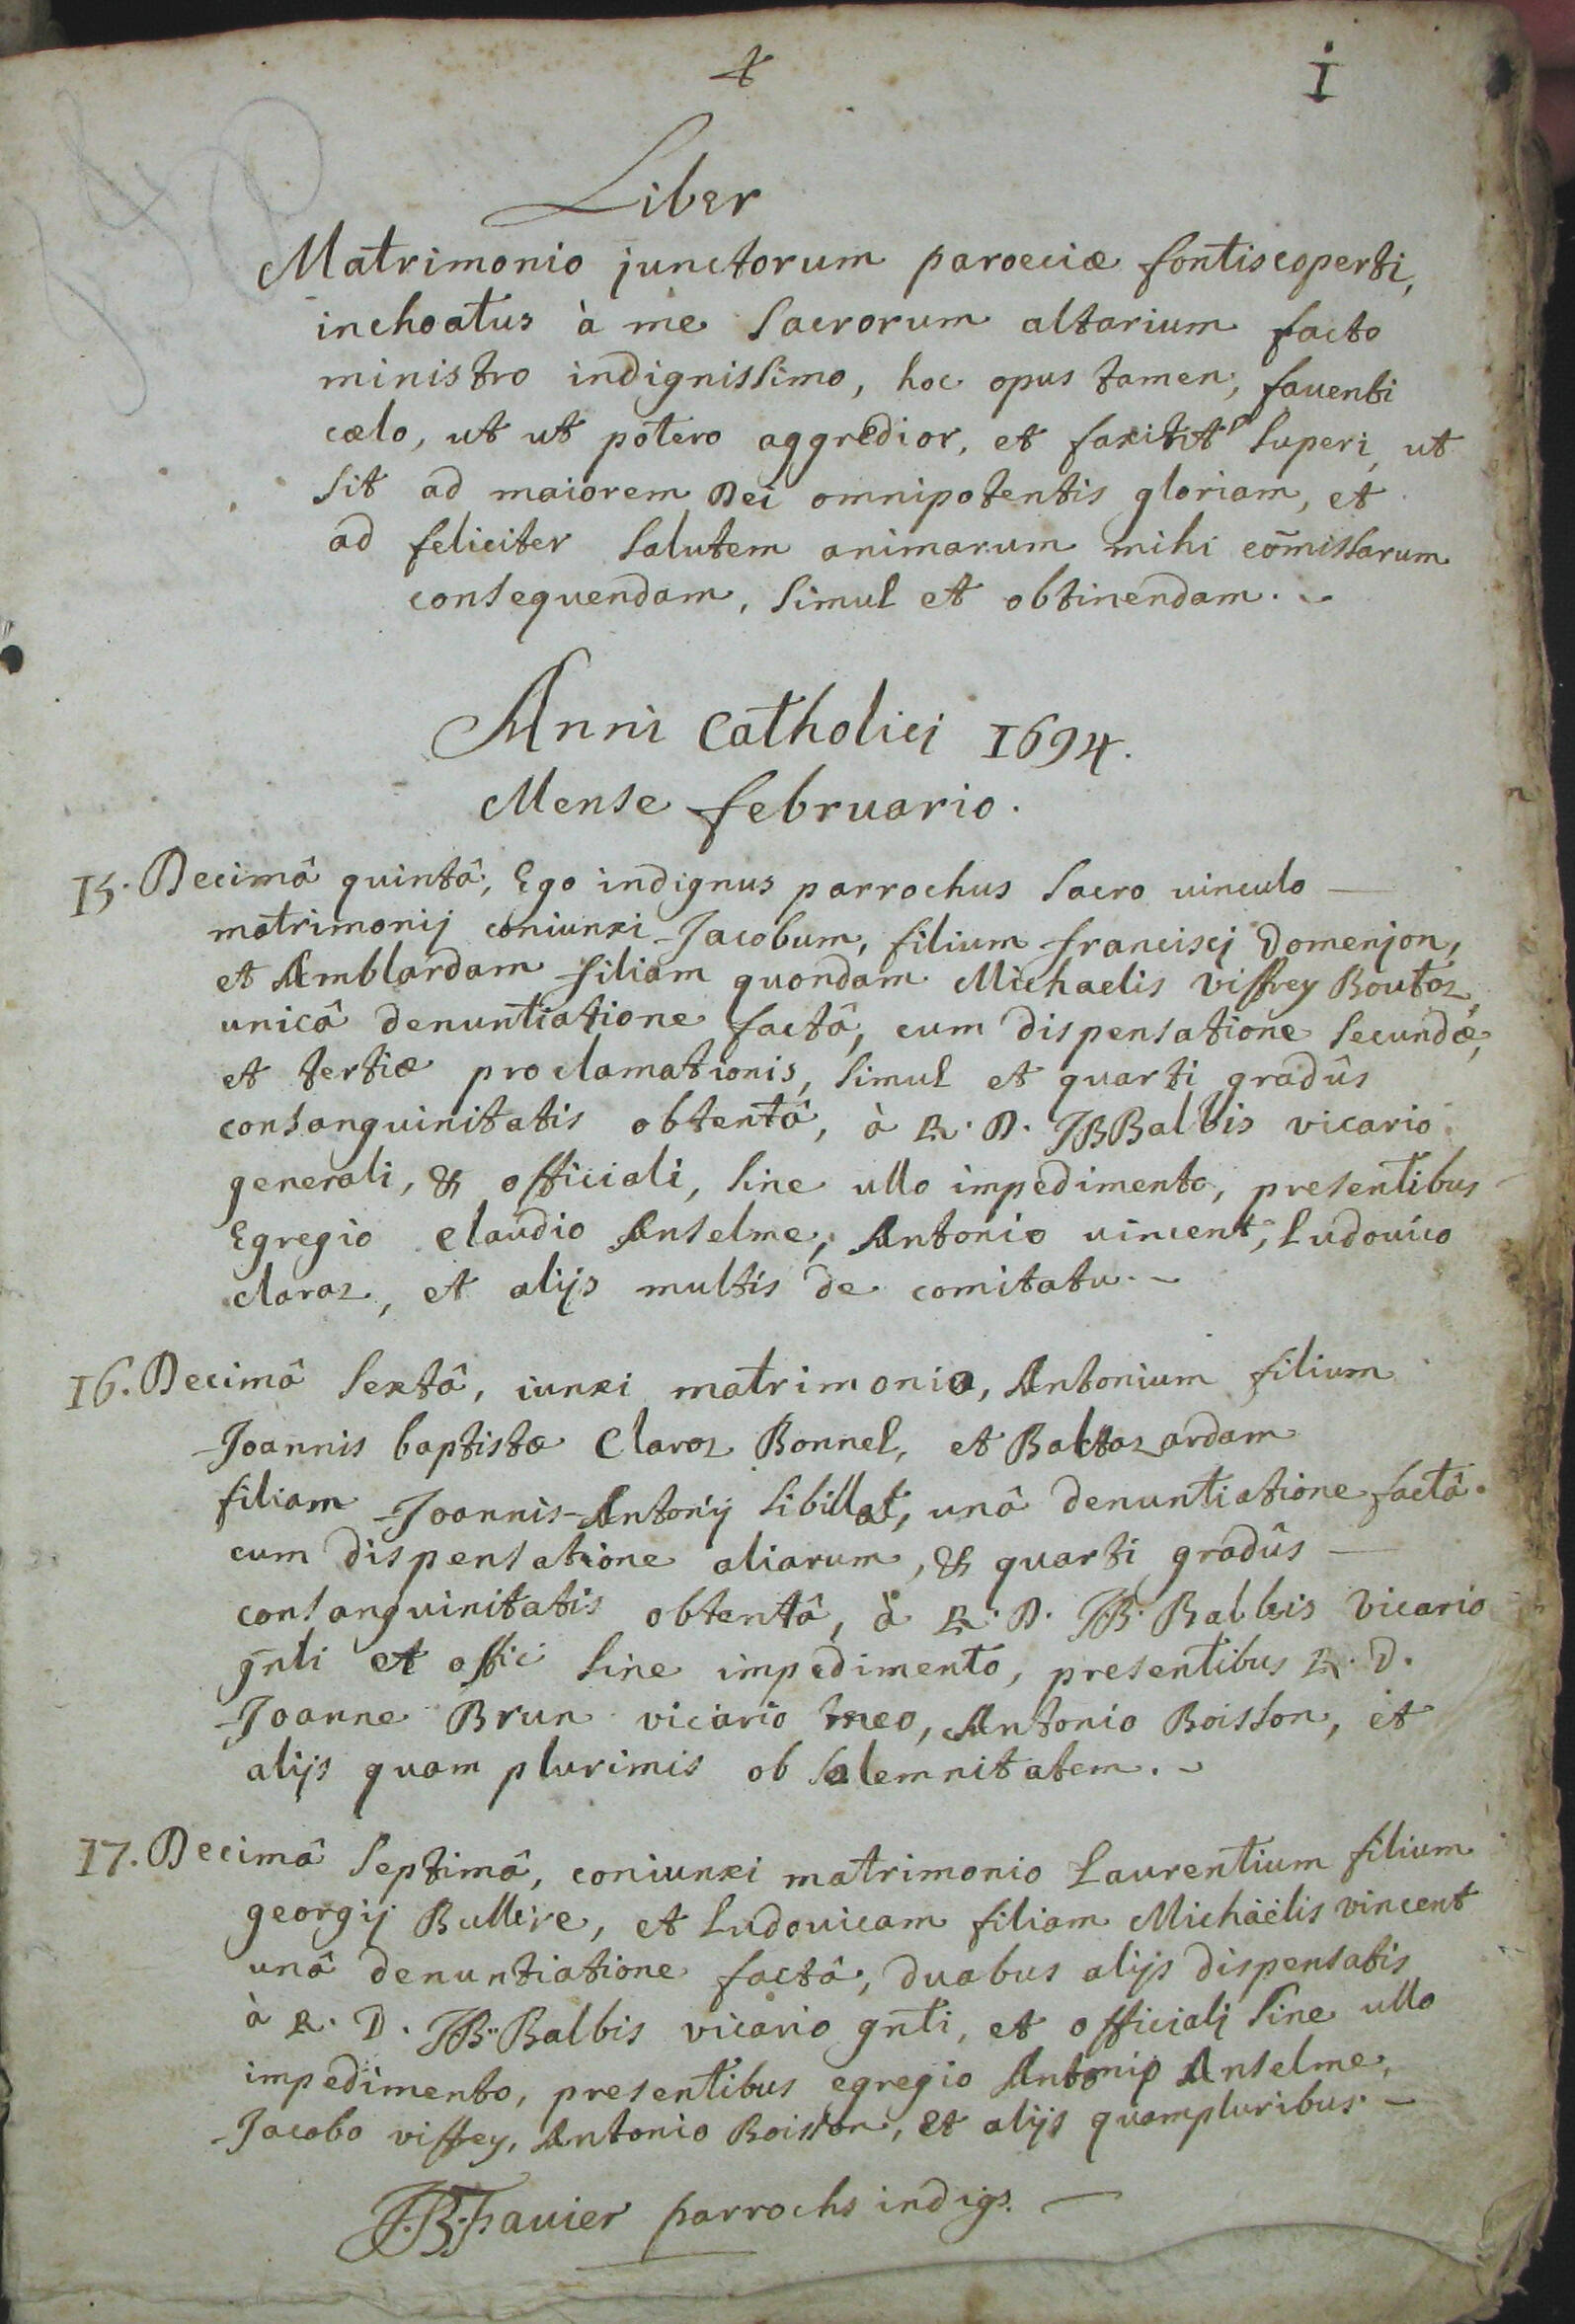 I
Liber
Matrimonio junctorum paroeciæ fontiscoperti,
inchoatus à me sacrorum altarium facto
ministro indignissimo, hoc opus tamen, fauenti
cælo, ut ut potero aggredior, et superi, ut
sit ad maiorem Dei omnipotentis gloriam, et
ad feliciter salutem animarum mihi com̃issarum
consequendam, simul et obtinendam.
Anni Catholici 1694.
Mense februario.
15. Decimâ quintâ, Ego indignus parrochus sacro uinculo
matrimonij coniunxi Jacobum, filium francisci Domenjon,
et Amblardam filiam quondam Michaelis Viffrey Boutoz,
unicâ denuntiatione factâ, cum dispensatione secundæ,
et tertiæ proclamationis, simul et quarti gradûs
consanguinitatis obtentâ, à R. D. JBBalbis vicario
generali, & officiali, sine ullo impedimento, presentibus
Egregio claudio Anselme, Antonio uincent, Ludouico
claraz, et alijs multis de comitatu.
16. Decimâ sextâ, iunxi matrimonio, Antonium filium
Joannis baptistæ Claraz Bonnel, et Baltazardam
filiam Joannis-Antonij sibillat, unâ denuntiatione factâ.
cum dispensatione aliarum, & quarti gradûs
consanguinitatis obtentâ, à R. D. JB. Balbis Vicario
gn̄li et offici sine impedimento, presentibus R. D.
Joanne Brun vicario meo, Antonio Boisson, et
alijs quam plurimis ob solemnitatem.
17. Decimâ septimâ, coniunxi matrimonio Laurentium filium
georgij Bullire, et Ludouicam filiam Michaëlis vincent
unâ denuntiatione factâ, duabus alijs dispensatis
à R. D. JB. Balbis vicario gn̄li, et officiali sine ullo
impedimento, presentibus egregio Antonio Anselme,
Jacobo viffrey, Antonio Boisson, et alijs quampluribus.
J.B. Fauier parrochs indigs.